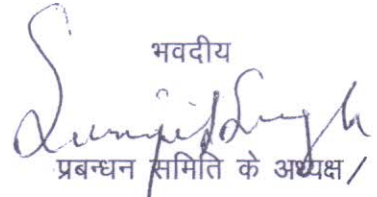 भवदीय
प्रबन्धन समिति के अध्यक्ष/